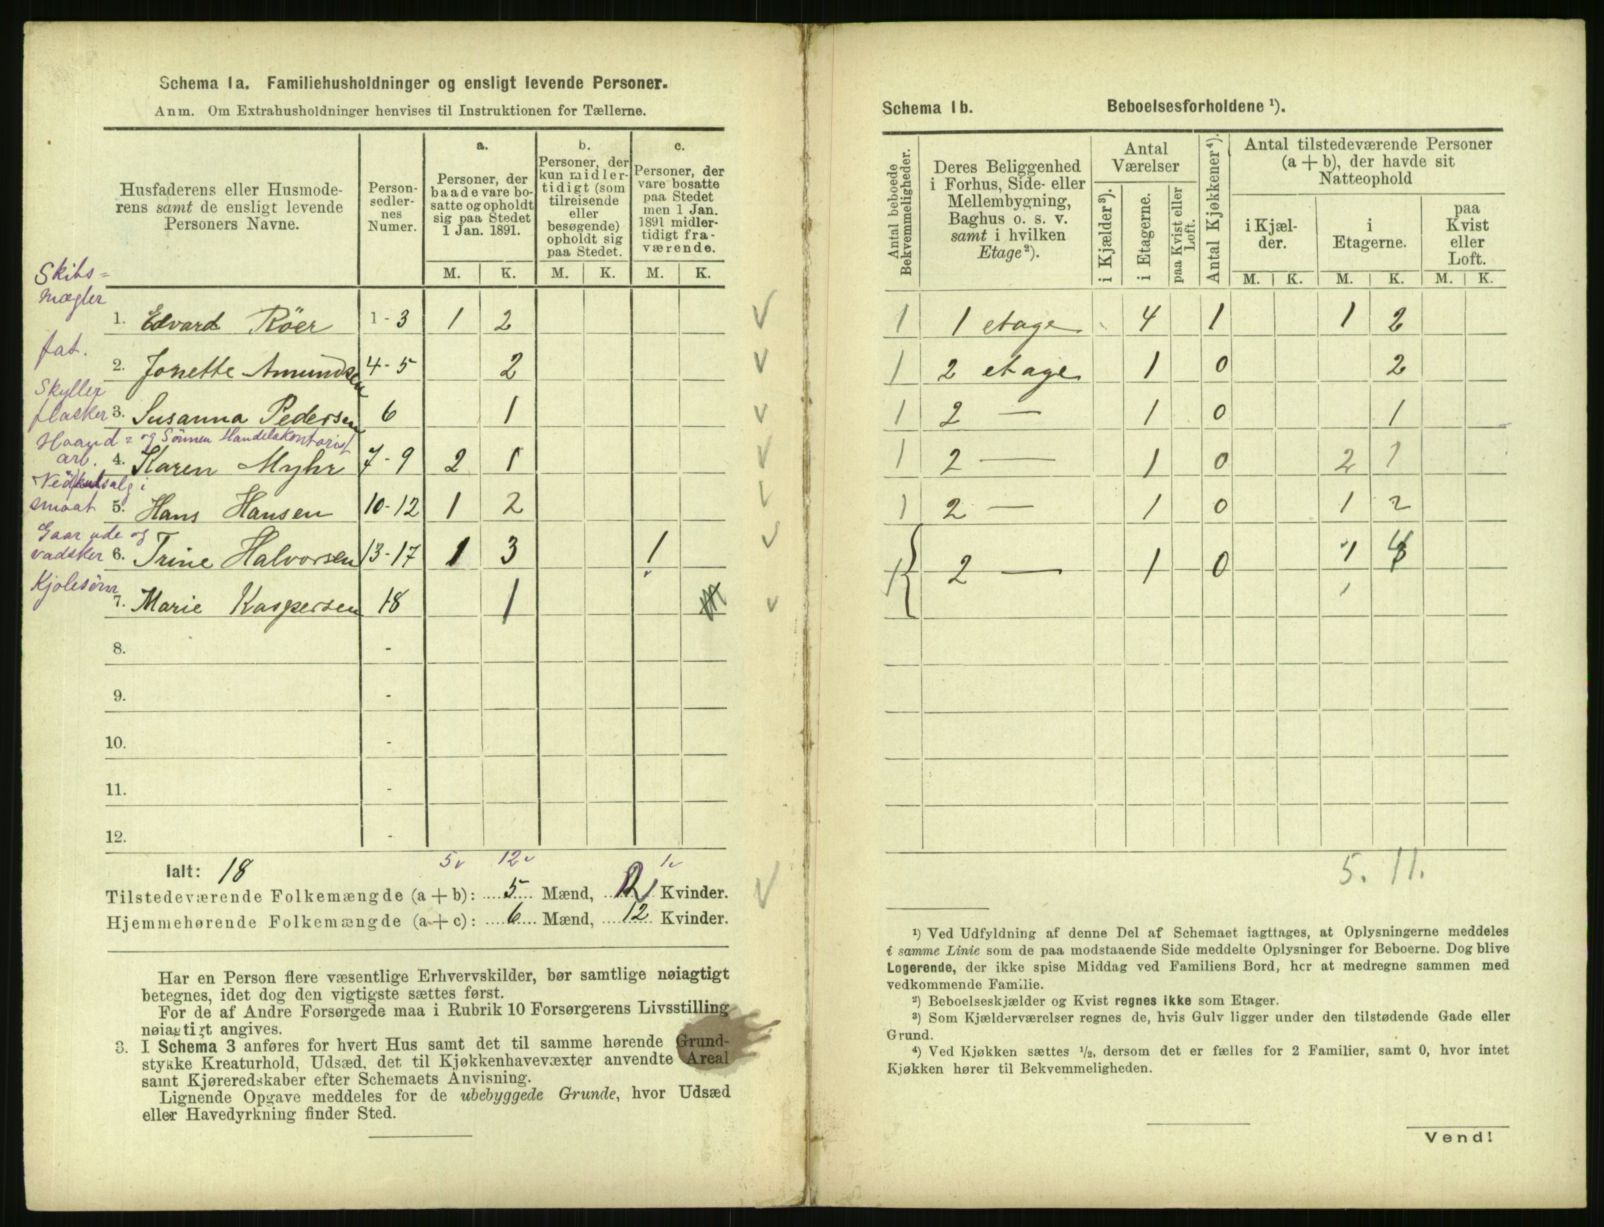 Schema 1a. Familiehusholdninger og ensligt levende Personer.
Anm. Om Extrahusholdninger henvises til Instruktionen for Tællerne.
Husfaderens eller Husmode-
rens samt de ensligt levende
Personers Navne.
Person-
sedler-
nes
Numer.
a.
Personer, der
baade vare bo-
satte og opholdt
sig paa Stedet
1 Jan. 1891.
b.
Personer, der
kun midler-
tidigt (som
tilreisende
eller
besøgende)
opholdt sig
paa Stedet.
c.
Personer, der
vare bosatte
paa Stedet
men 1 Jan.
1891 midler-
tidigt fra-
værende.
M. K. M. K. M. K.
Skibs=
mægler
1. Edvard Röer 1-3 1 2
fat.
2. Jonette Amundsen 4-5 2
Skyller
flasker 3. Susanna Pedersen 6 1
Haand= og Sönnen Handelskontorist
arb. 4. Karen Myhr 7-9 2 1
Vedudsalg i
smaat 5. Hans Hansen 10-12 1 2
Gaar ude og
vadsker 6. Trine Halvorsen 13-17 1 3 1
Kjolesöm
7. Marie Kaspersen 18 1
8. -
9. -
10. -
11. -
12. -
5 12 1
Ialt: 18
Tilstedeværende Folkemængde (a + b): 5 Mænd, Kvinder.
Hjemmehørende Folkemængde (a + c): 6 Mænd, 12 Kvinder.
Har en Person flere væsentlige Erhvervskilder, bør samtlige nøiagtigt
betegnes, idet dog den vigtigste sættes først.
For de af Andre Forsørgede maa i Rubrik 10 Forsørgerens Livsstilling
nøiagtigt angives.
3. I Schema 3 anføres for hvert Hus samt det til samme hørende Grund-
stykke Kreaturhold, Udsæd, det til Kjøkkenhavevæxter anvendte Areal
samt Kjøreredskaber efter Schemaets Anvisning.
Lignende Opgave meddeles for de ubebyggede Grunde, hvor Udsæd
eller Havedyrkning finder Sted.
Schema 1b. Beboelsesforholdene ¹).
Antal beboede
Bekvemmeligheder.
Deres Beliggenhed
i Forhus, Side- eller
Mellembygning,
Baghus o. s. v.
samt i hvilken
Etage²).
Antal
Værelser
i Kjælder³).
i Etagerne.
paa Kvist eller
Loft.
Antal Kjøkkener⁴).
Antal tilstedeværende Personer
(a + b), der havde sit
Natteophold
i Kjæl-
der.
i
Etagerne.
paa
Kvist
eller
Loft.
M. K. M. K. M. K.
1 1 etage 4 1 1 2
1 2 etage 1 0 2
1 2 — 1 0 1
1 2 — 1 0 2 1
1 2 — 1 0 1 2
1 2 — 1 0 1
5. 11.
¹) Ved Udfyldning af denne Del af Schemaet iagttages, at Oplysningerne meddeles
i samme Linie som de paa modstaaende Side meddelte Oplysninger for Beboerne. Dog blive
Logerende, der ikke spise Middag ved Familiens Bord, her at medregne sammen med
vedkommende Familie.
²) Beboelseskjælder og Kvist regnes ikke som Etager.
³) Som Kjælderværelser regnes de, hvis Gulv ligger under den tilstødende Gade eller
Grund.
⁴) Ved Kjøkken sættes ½, dersom det er fælles for 2 Familier, samt 0, hvor intet
Kjøkken hører til Bekvemmeligheden.
Vend!